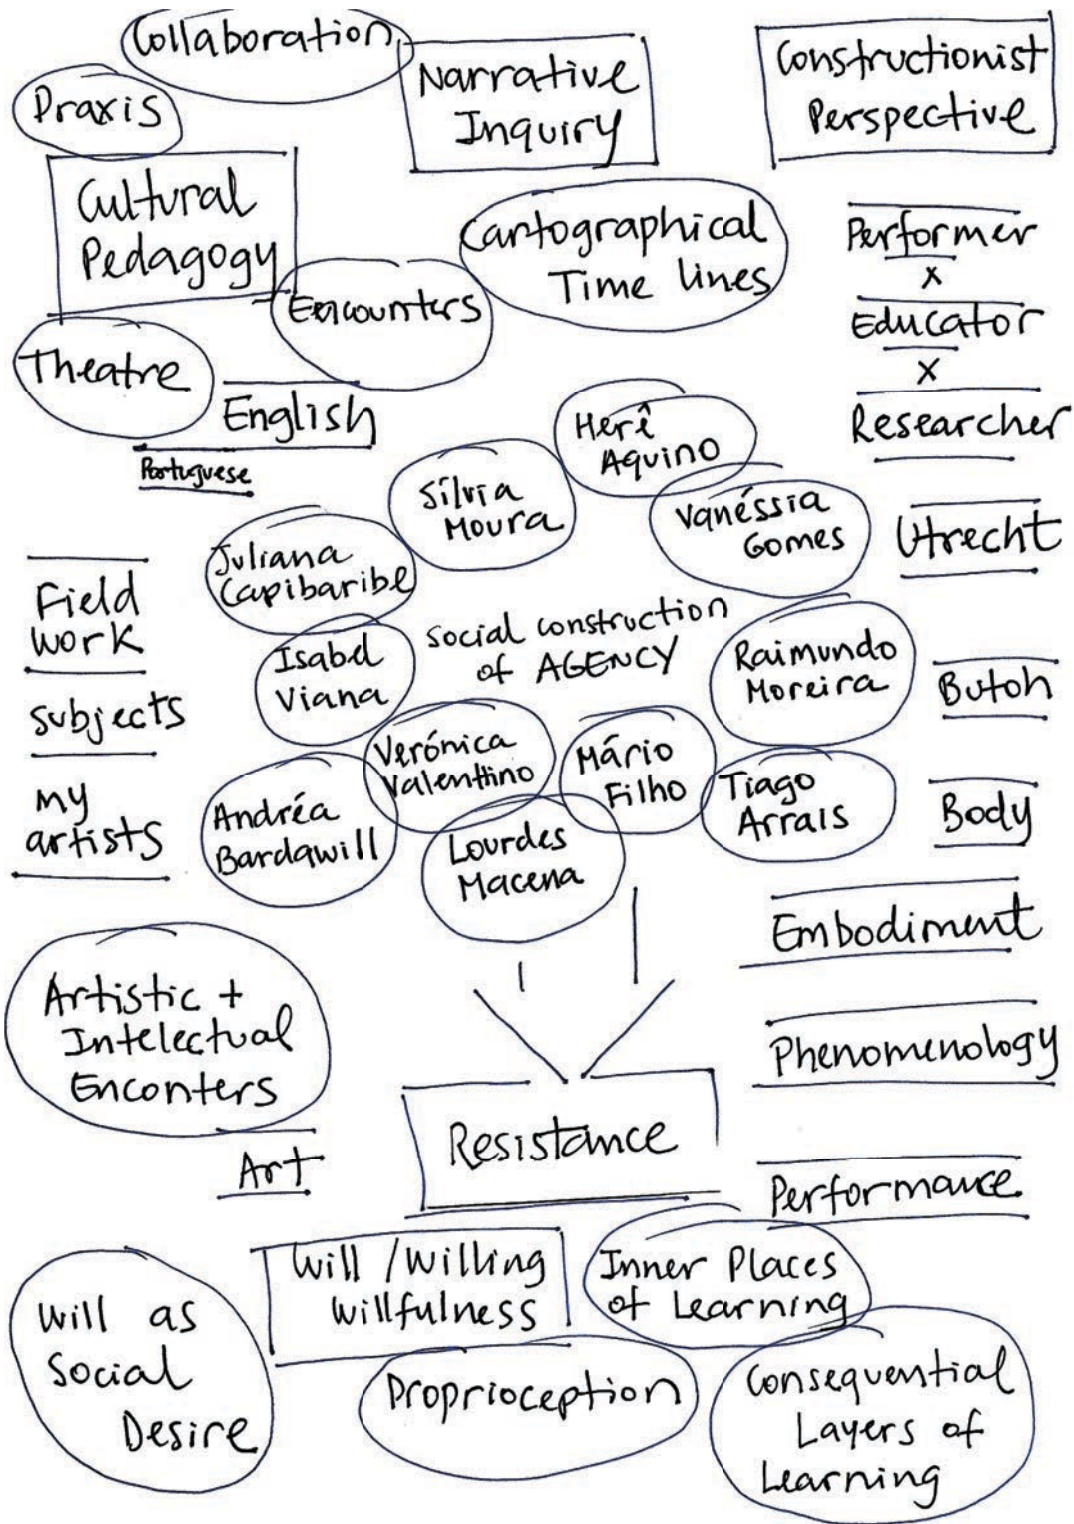 Collaboration
Praxis
Narrative
Inquiry
Constructionist
Perspective
Cultural
Pedagogy
Cartographical
Time lines
Encounters
Performer
x
Educator
x
Researcher
Theatre
English
Portuguese
Herê
Aquino
Sílvia
Moura
Vanéssia
Gomes
Utrecht
Juliana
Capibaribe
Field
work
subjects
my
artists
Isabel
Viana
social construction
of AGENCY
Raimundo
Moreira
Butoh
Verónica
Valentino
Mário
Filho
Tiago
Arrais
Body
Andréa
Bardawill
Lourdes
Macena
Embodiment
Artistic +
Intelectual
Enconters
Phenomenology
Resistance
Art
Performance
Will / Willing
Willfulness
Inner Places
of Learning
Will as
Social
Desire
Proprioception
Consequential
Layers of
Learning